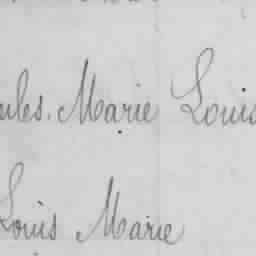 ules. Marie Louis
Louis Marie